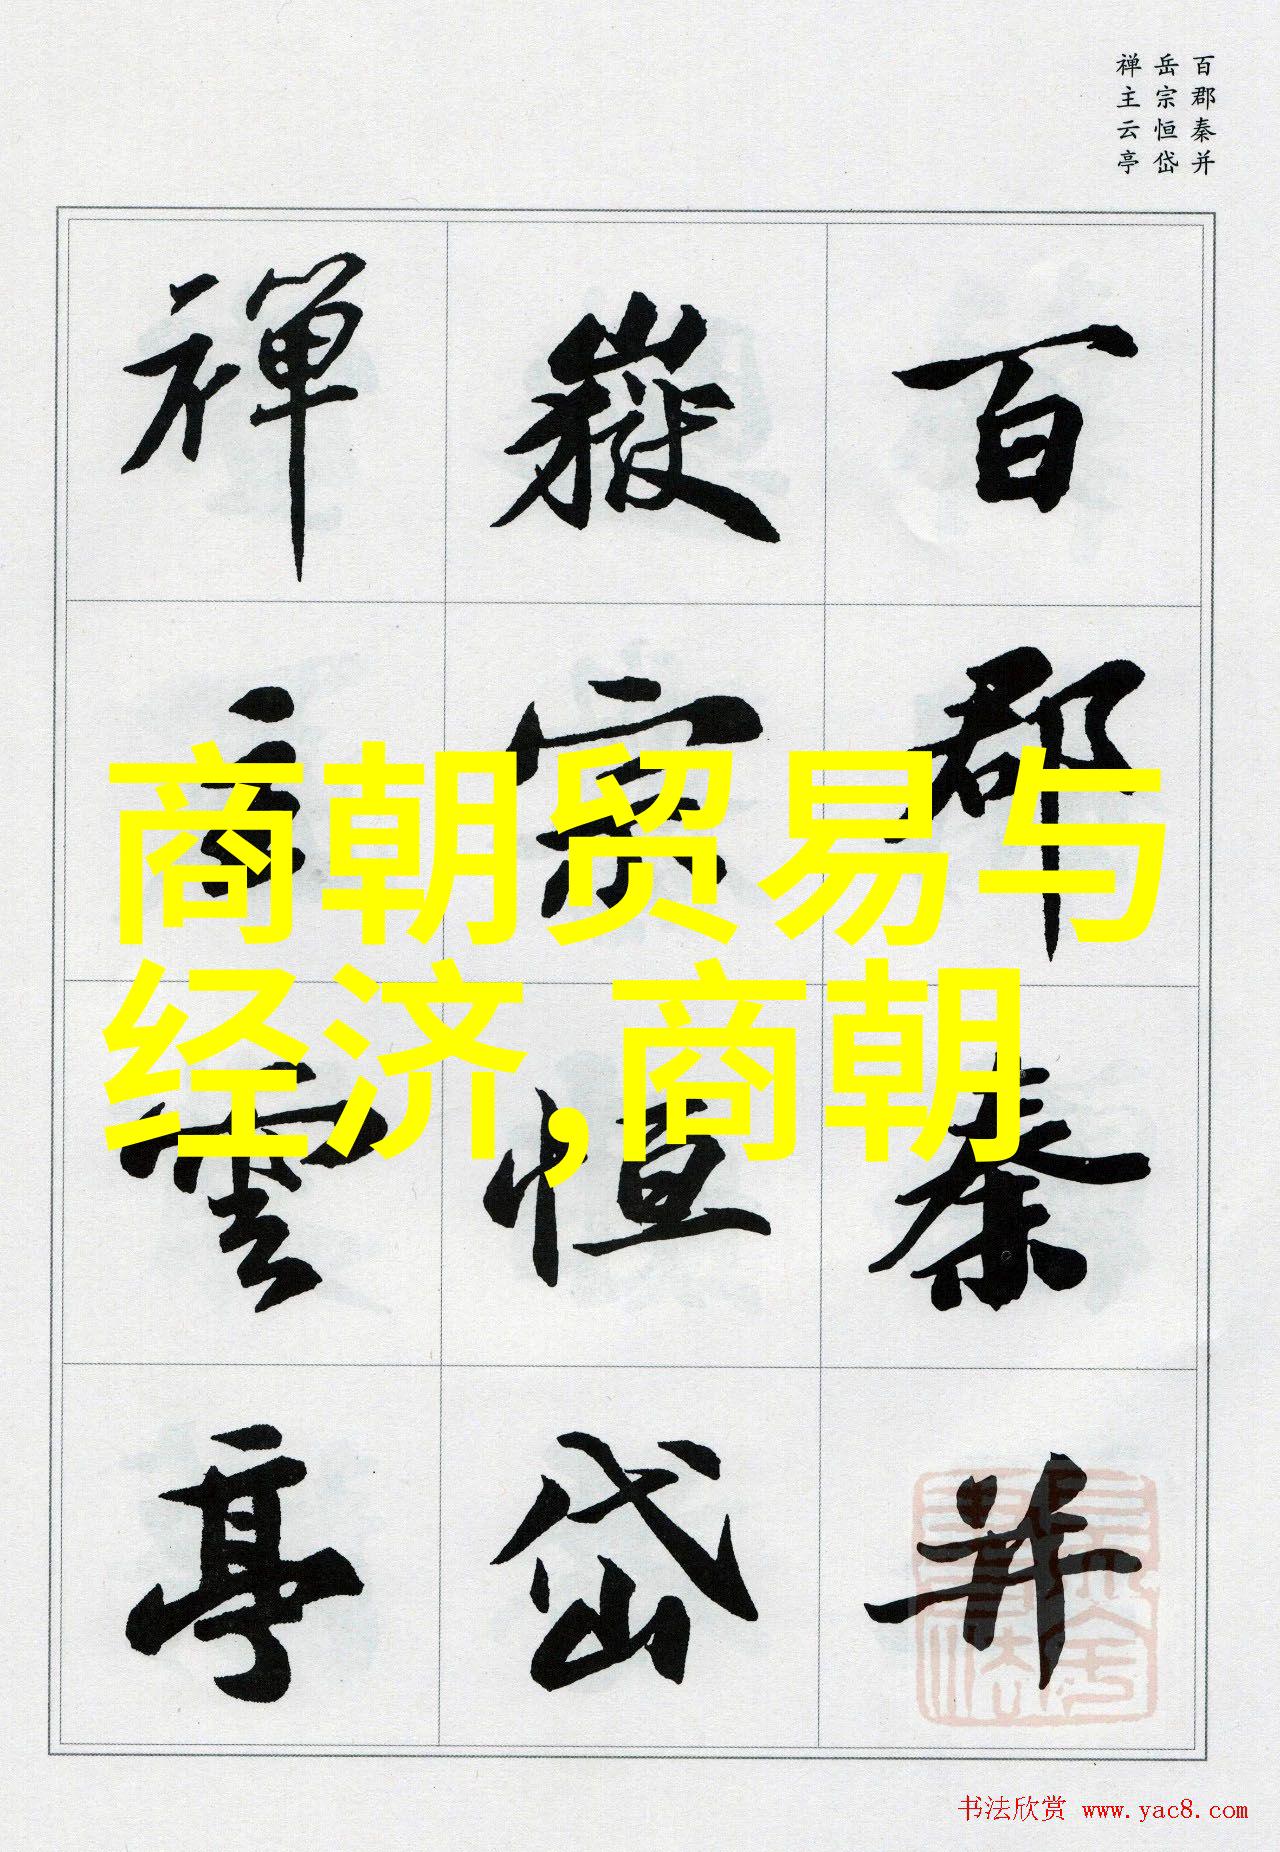 百郡秦并
岳宗恒岱
禅主云亭
百郡秦并
嶽宗恒岱
禪主雲亭
商朝贸易与
经济,商朝
书法欣赏 www.yac8.com